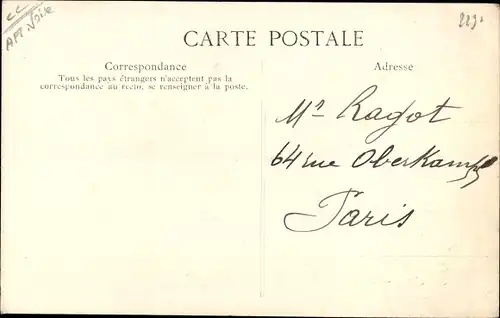 CARTE POSTALE
Correspondance
Tous les pays étrangers n'acceptent pas la
correspondance au recto, se renseigner à la poste.
Adresse
Mr Ragot
64 rue Oberkampf
Paris